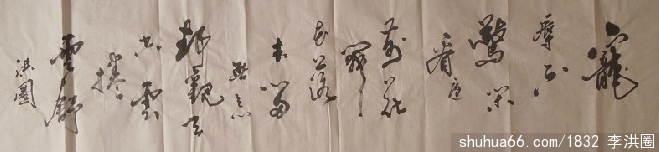 寵
辱不
驚閒
看庭
前花
開
花落
去留
無意
觀天
外雲
捲
雲舒
洪圈
shuhua66.com/1832 李洪圈